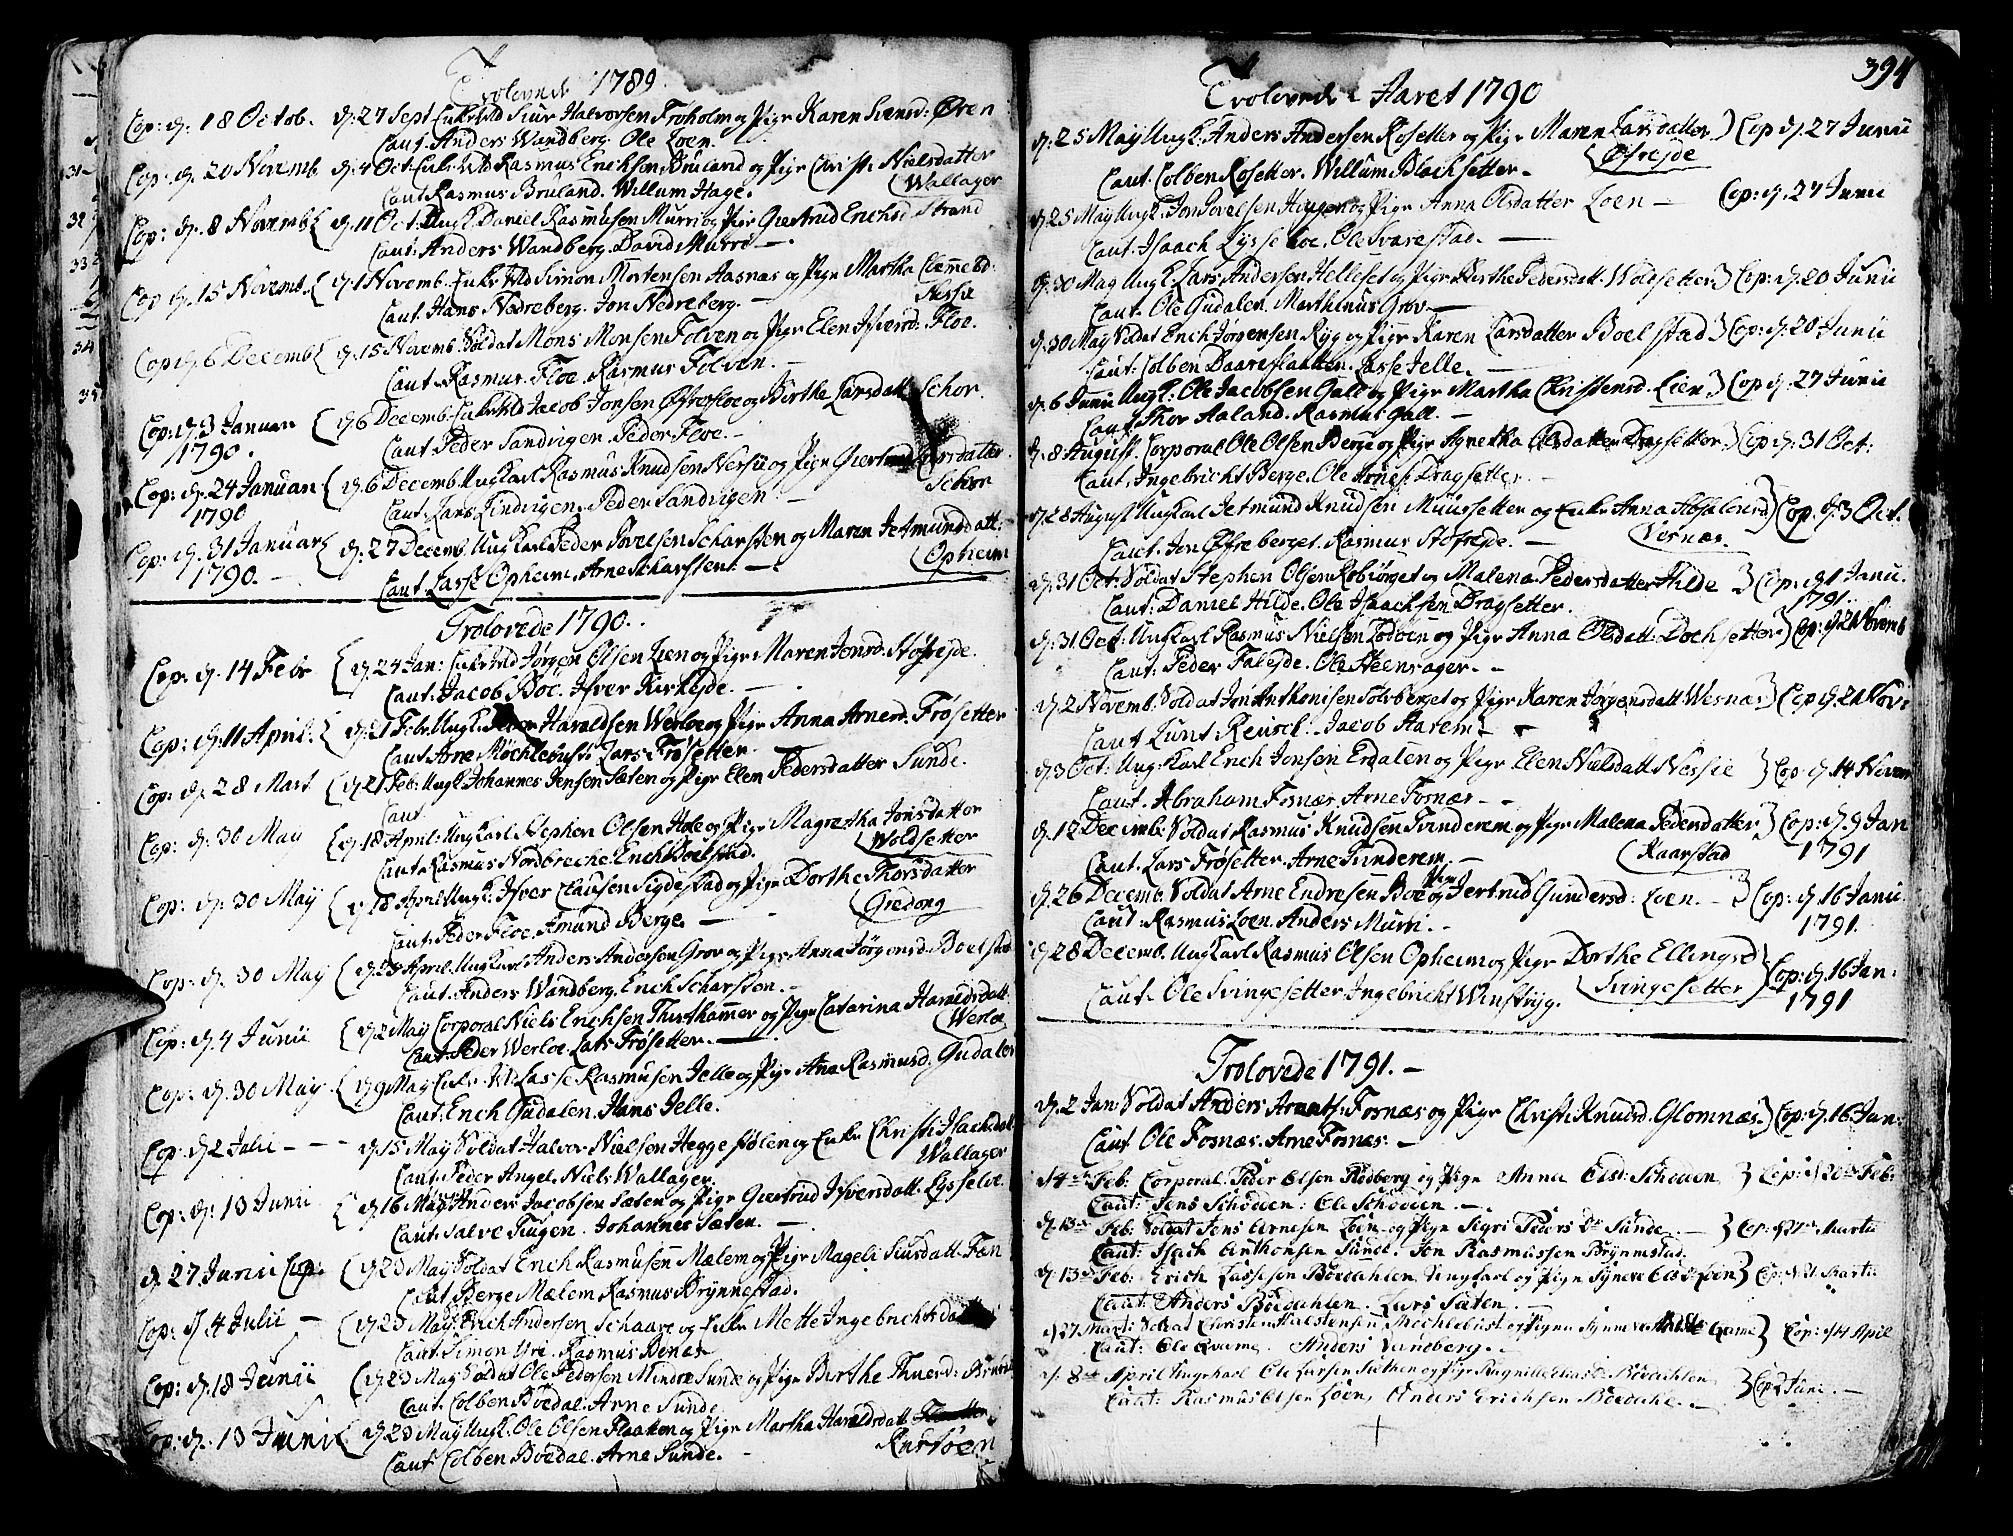 Trolovede 1789
Cop: d. 18 Octob. d: 27 Sept Enkem Siur Halvorsen Frøholm og Pige Karen Svensd. Øren
Caut. Anders Wandberg. Ole Loen.
Cop: d. 20 Novemb d: 4 Oct: Rasmus Erichsen Bruland og Pige Christi Nielsdatter
Wallager
Caut. Rasmus Bruland. Willum Hage.
Cop: d. 8 Novemb { d. 11 Oct: Ungk. Daniel Rasmusen Murri og Pige Giertrud Erichsd Strand
Caut: Anders Wandberg. David Murri
Cop d. 15 Novemb. { d. 1 Novemb. Simon Mortensen Aasnæs og Pige Martha Clemetsd:
Nessie
Caut. Hans Nedreberg. Jon Nedreberg.
Cop d. 6 Decemb { d. 15 Novemb. Soldat Mons Monsen Folven og Pige Elen Ifversd: Floe.
Caut. Rasmus Floe. Rasmus Folven.
Cop: d. 3 Januar { d. 6 Decemb. Jacob Jonsen Øfrefloe og Birthe Larsdatt. Schor.
1790.
Caut. Peder Sandvigen. Peder Floe.
Cop: d. 24 Januar { d. 6 Decemb. Ungkarl Rasmus Knudsen Nessie og Pige Giertrud Larsdatter
Schor
1790
Caut. Lars Lindvigen. Peder Sandvigen.
Cop: d. 31 Januar { d. 27 Decemb. Ungkarl Peder Povelsen Scharsten og Maren Jetmundsdatt:
Opheim
1790.
Caut. Lasse Opheim. Arne Scharsten.
Trolovede 1790.
Cop. d. 14 Febr { d. 24 Jan: Jørgen Olsen Lien og Pige Maren Jonsd. Støfrejde.
Caut: Jacob Boe. Ifver Kirkejde.
Cop: d. 11 April. { d. 21 Febr. Ungk. Haraldsen Werloe og Pige Anna Arnesd. Frøsetter
Caut Arne Mochlebust. Lars Frøsetter.
Cop: d. 28 Mart { d. 21 Feb: Ungk Johannes Jensen Sæten og Pige Elen Pedersdatter Sunde.
Caut
Cop: d: 30 May { d. 18 April. Ungkarl Stephen Olsen Hole og Pige Magretha Jonsdatter
Woldsetter
Caut. Rasmus Nordbreche. Erich Boelstad.
Cop: d: 30 May { d. 18 April Ungk. Ifver Clausen Sigdestad og Pige Dorthe Thorsdatter
Giedong
Caut. Peder Floe. Amund Berge.
Cop: d. 30 May { d. 25 April. Ungkarl Anders Andersen Grov og Pige Anna Jørgensd. Boelstad
Caut. Anders Wandberg. Erich Scharsten.
Cop: d. 4 Junii { d. 2 May Corporal Niels Erichsen Thisthammer og Pige Catarina Haraldsdatt.
Werloe
Caut. Peder Werloe. Lars Frøsetter.
Cop: d. 30 May. { d. 9 May Lasse Rasmusen Jelle og Pige Ane Rasmusd. Gudalen
Caut. Erich Gudalen. Hans Jelle.
Cop: d. 2 Julii d. 15 May Soldat Halvor Nielsen Heggestølen og Enke Christi Isachsdatt
Wallager
Caut. Peder Angel. Niels Wallager.
Cop: d: 13 Junii { d. 16 May Anders Jacobsen Sæten og Pige Giertrud Ifversdatt. Lysseloe.
Caut. Salve Tugen. Johannes Sæten.
d. 27 Junii Cop: { d. 23 May Soldat Erich Rasmusen Mælem og Pige Mageli Siursdatt. Tan
Caut Berge Mælem Rasmus Brynnestad.
Cop: d. 4 Julii { d. 23 May: Erich Andersen Schaare og Enke Mette Ingebrichtsdatter
Caut. Simon Ure. Rasmus Benæs
Cop: d. 18 Junii { d. 23 May Soldat Ole Pedersen Mindre Sunde og Pige Birthe Thuesd:
Caut. Colben Bøedal. Arne Sunde.
Cop: d. 13 Junii { d. 23 May Ungk. Ole Olsen Flaatten og Pige Martha Haraldsdatt.
Rustøen
Caut Colben Bøedal. Arne Sunde.
394
Trolovede i Aaret 1790
d. 25 May Ungk. Anders Andersen Rosetter og Pige Maren Larsdatter } Cop d. 27 Junii
Øfrejde
Caut. Colben Rosetter. Willum Blachsetter.
d. 25 May Ungk. Jon Povelsen Haugen og Pige Anna Olsdatter Loen Cop: d. 27 Junii
Caut: Isaach Lysseloe. Ole Svarestad.
d. 30 May Ungk. Lars Andersen Helleset og Pige Berthe Pedersdatt. Woldsetter } Cop: d. 20 Junii
Caut. Ole Gudalen. Marthinus Grov.
d. 30 May Soldat Erich Jørgensen Ryg og Pige Karen Larsdatter Boelstad } Cop: d. 20 Junii
Caut. Colben Daareflaatten. Lasse Jelle.
d. 6 Junii Ungk: Ole Jacobsen Gall og Pige Martha Christensd. Lien } Cop d. 27 Junii
Caut Thor Aaland. Rasmus Gall.
d. 8 August. Corporal Ole Olsen Berge og Pige Agnetha Olsdatter Dragsetter } Cop d: 31 Oct:
Caut. Ingebricht Berge. Ole Arnes: Dragsetter.
d. 28 August Ungkarl Jetmund Knudsen Muusetter og Enke Anna Absalonsd } Cop. d. 3 Oct.
Vesnæs.
Caut. Jon Øfreberget. Rasmus Støfrejde.
d. 31 Oct: Soldat Stephen Olsen Robiørget og Malena Pedersdatter Hilde } Cop: d. 1 Janu.
1791.
Caut: Daniel Hilde. Ole Isaachsen Dragsetter.
d. 31 Oct: Ungkarl Rasmus Nielsen Lodoen og Pige Anna Olsdatt: Dochsetter } Cop: d. 21 Novemb
Caut: Peder Falejde. Ole Steensager.
d. 2 Novemb. Soldat Jon Anthonisen Solsberget og Pige Karen Jørgensdatt Wesnæs } Cop d. 21 Nov:
Caut Lunt Reusch. Jacob Aarem.
d. 3 Oct: Ung: Karl Erich Jonsen Erdalen og Pige Elen Nielsdatt Nessie } Cop: d. 14 Novem
Caut. Abraham Fosnæs. Arne Fosnæs.
d. 12 Decemb. Soldat Rasmus Knudsen Tvinderem og Pige Malena Pedersdatter } Cop: d. 9 Jan
Kaarstad 1791
Caut. Lars Frøsetter. Arne Tvinderem.
d. 26 Decemb. Soldat Arne Endresen Boe og Pige Jertrud Gundersd: Loen. } Cop: d. 16 Janu.
1791.
Caut. Rasmus Loen. Anders Muri.
d. 28 Decemb. Ungkarl Rasmus Olsen Opheim og Pige Dorthe Ellingsd } Cop: d. 16 Jan:
Svingesetter 1791
Caut. Ole Svingesetter Ingebricht Winstryg.
Trolovede 1791.
d. 2 Jan: Soldat Anders Arents: Fosnæs og Pige Christi Knudsd. Glomnæs. } Cop: d. 16 Jan:
Caut Ole Fosnæs. Arne Fosnæs.
d 4de Feb: Corporal Peder Olsen Rødberg og Pige Anna Olsd: Schoeen } Cop: d 20de Feb:
Caut: Jens Schoeen: Ole Schoeen.
d. 13de Feb: Soldat Jens Arnesen Loen og Pige Sigri Peders Dr Sunde } Cop: d 27de Martii
Caut: Isach Anthonsen Sunde. Jon Rasmussen Brynnestad.
d. 13de Feb: Erich Lassesen Bøedahlen Ungkarl og Pige Syneve Ols Dr Loen } Cop: d 21 Martii
Caut: Anders Bøedahlen. Lars Sæten.
d 27 Marti: Soldat Christen Mechlebust og Pigen Synneve Qvame } Cop: d 4 April
Caut: Ole Qvame. Anders Vandberg.
d. 8de April Ungekarl Ole Larsen Sæthen og Pige Bøedahlen } Cop 2 Juni.
Caut: Rasmus Olsen Loen, Anders Erichsen Bøedahl.